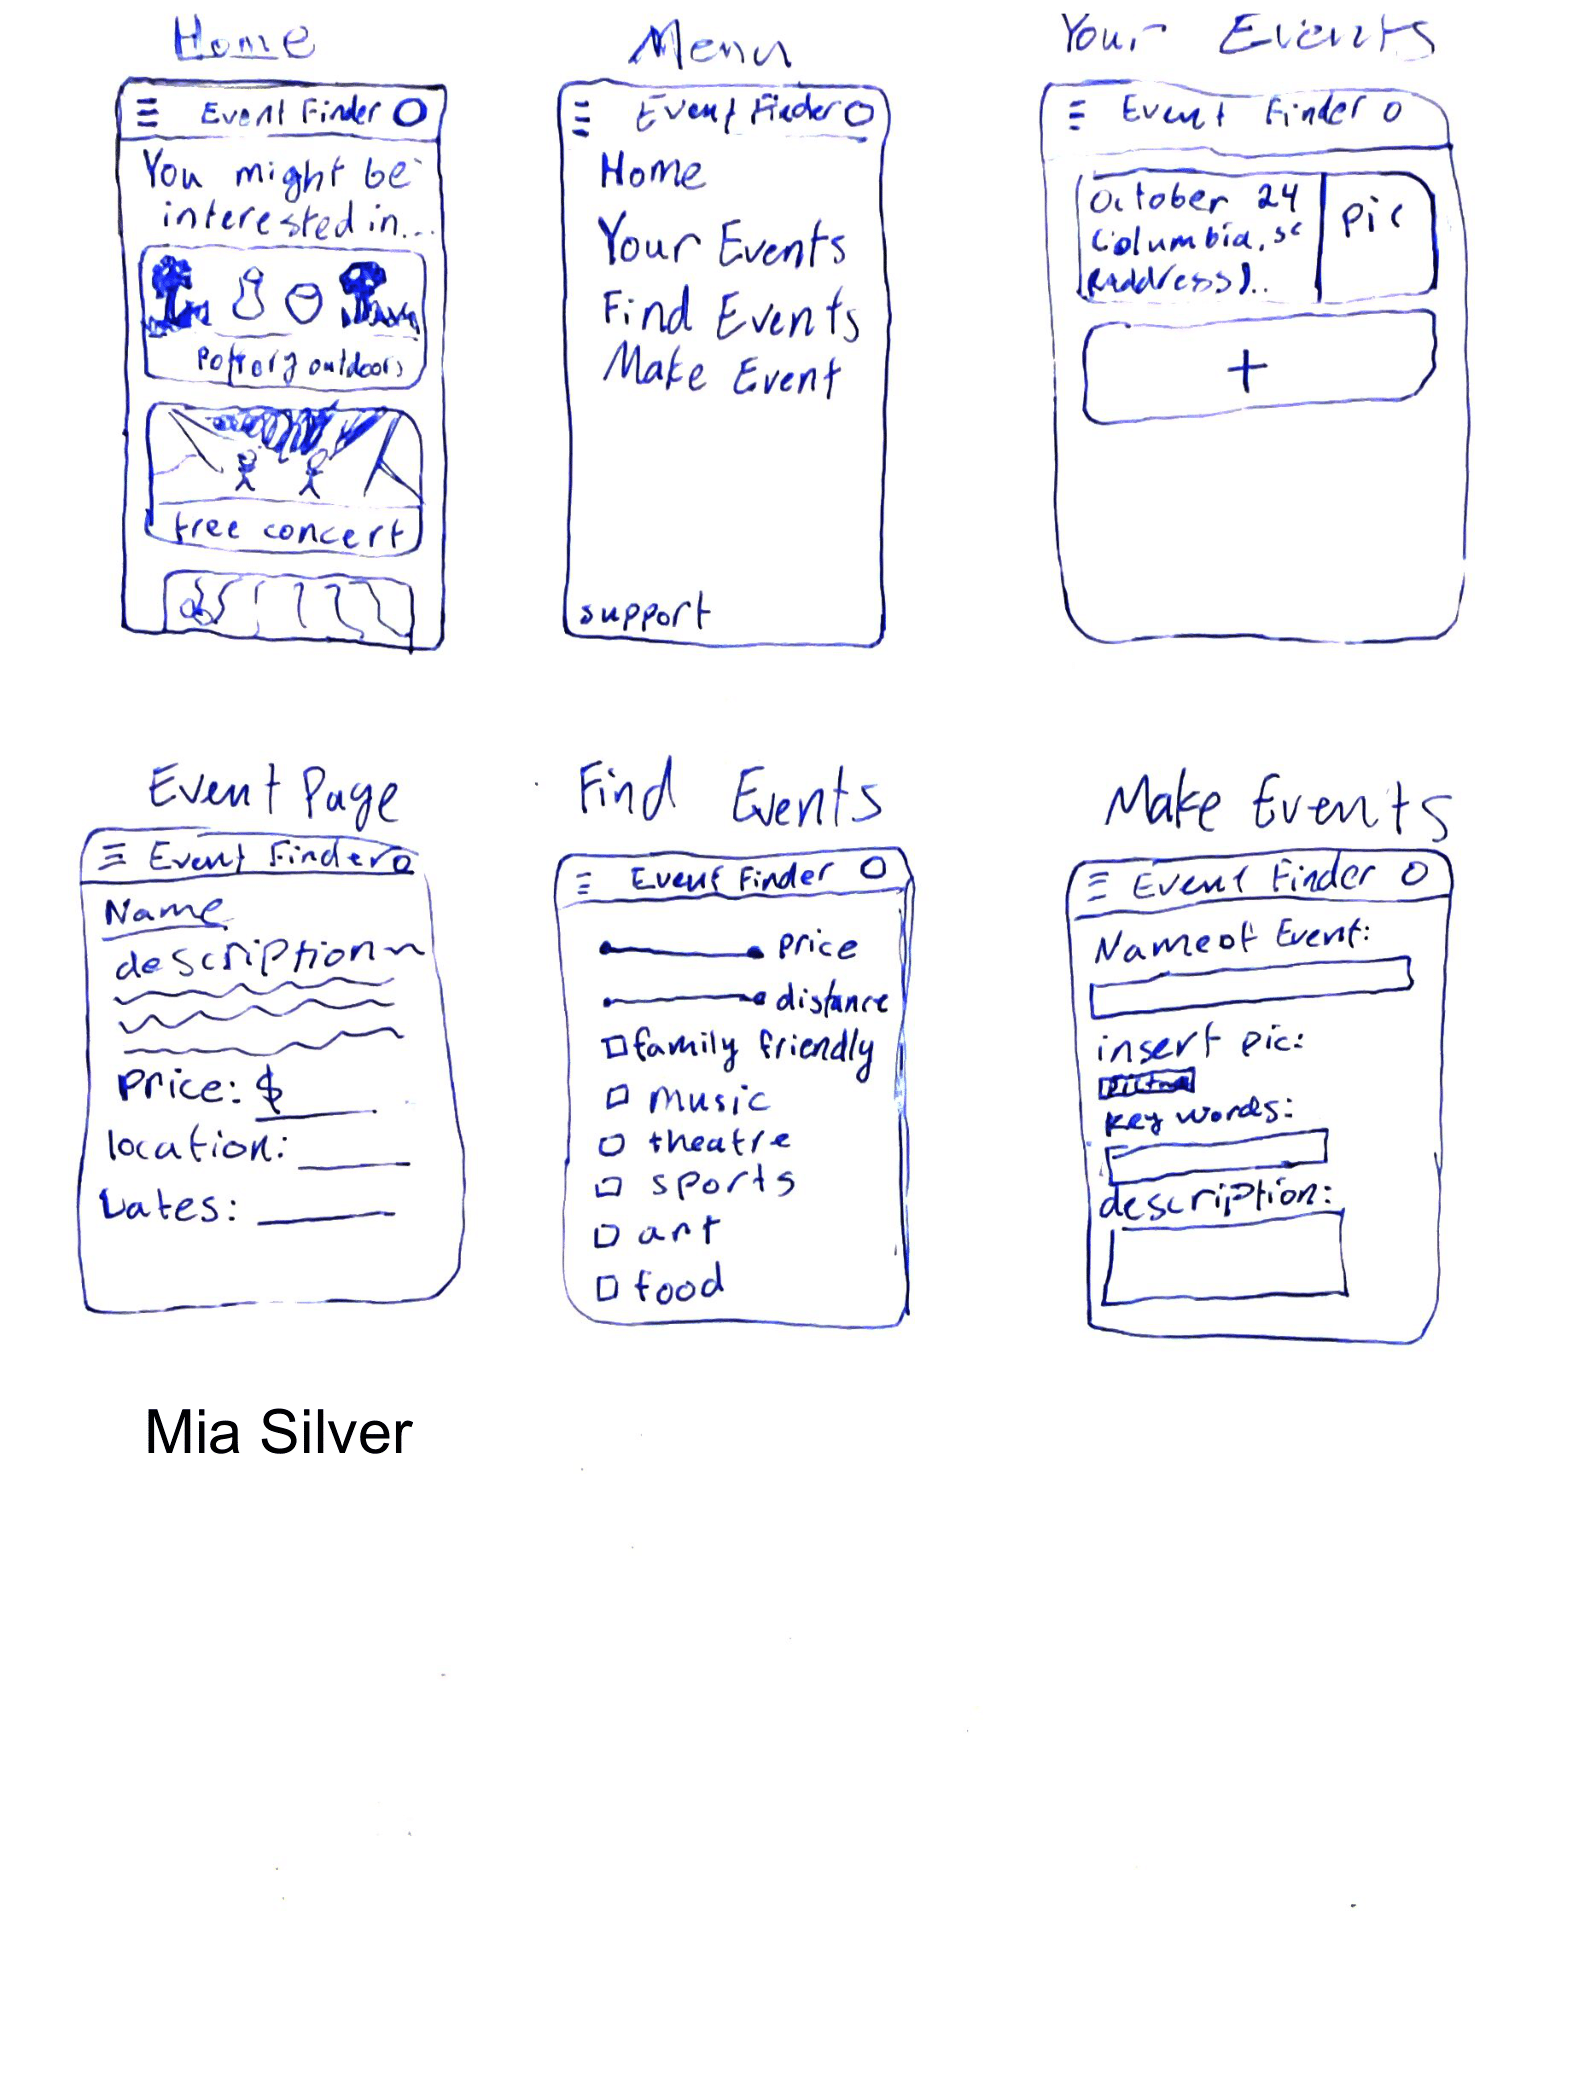 Home
Event Finder
You might be
interested in...
Pottery outdoors
free concert
Menu
Event Finder
Home
Your Events
Find Events
Make Event
support
Your Events
Event Finder
October 24
Columbia, sc
(address)..
pic
+
Event Page
Event Finder
Name
description
Price: $
location:
Dates:
Find Events
Event Finder
price
distance
family friendly
music
theatre
sports
art
food
Make Events
Event Finder
Name of Event:
insert pic:
key words:
description:
Mia Silver